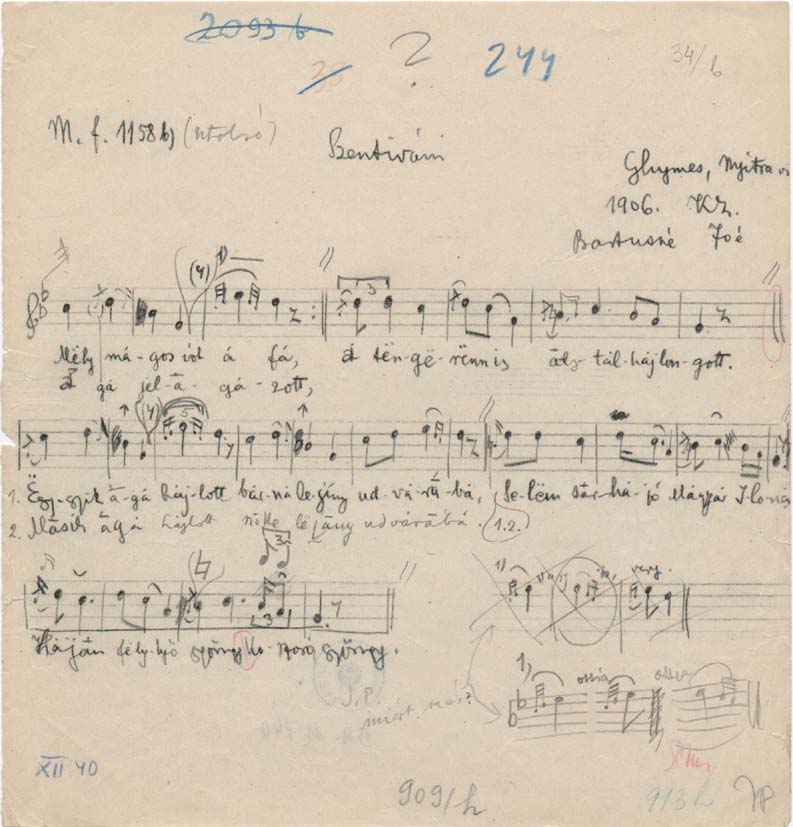 2093 b
38 ? 244 34/b
M. f. 1158 b) (utolsó)
Szentiváni
Ghymes, Nyitra v
1906. KZ.
(4)
3
Mély má-gos vót á fá, A tën-gë-rënnis álz-tál-hájlon-gott.
A gá jel-á-gá-zott,
(4) 5
1. Ëgy-szik á-gá háj-lott bár-ná le-gíny ud-vá-rá-bá, Se-lëm sár-há-jó Mágyár Ilo-nás
2. Másik ágá hájlott lëjány udvárábá. (1.2.)
3
1) vagy
Háján fely-lyó gyöngy ko-szoró gyöngy.
1) ossia ossia
J. P.
miért más?
XII 40
909/h 913h